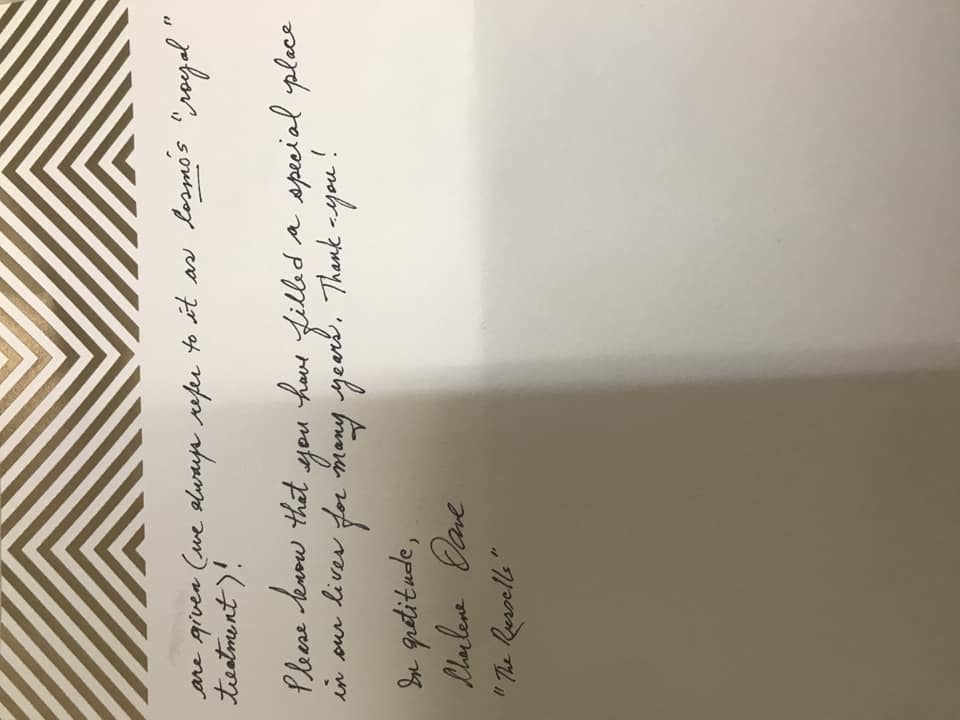 are given (we always refer to it as Cosmo's "royal"
treatment)!
Please know that you have filled a special place
in our lives for many years. Thank-you!
In gratitude,
Charlene Dave
"The Russells"